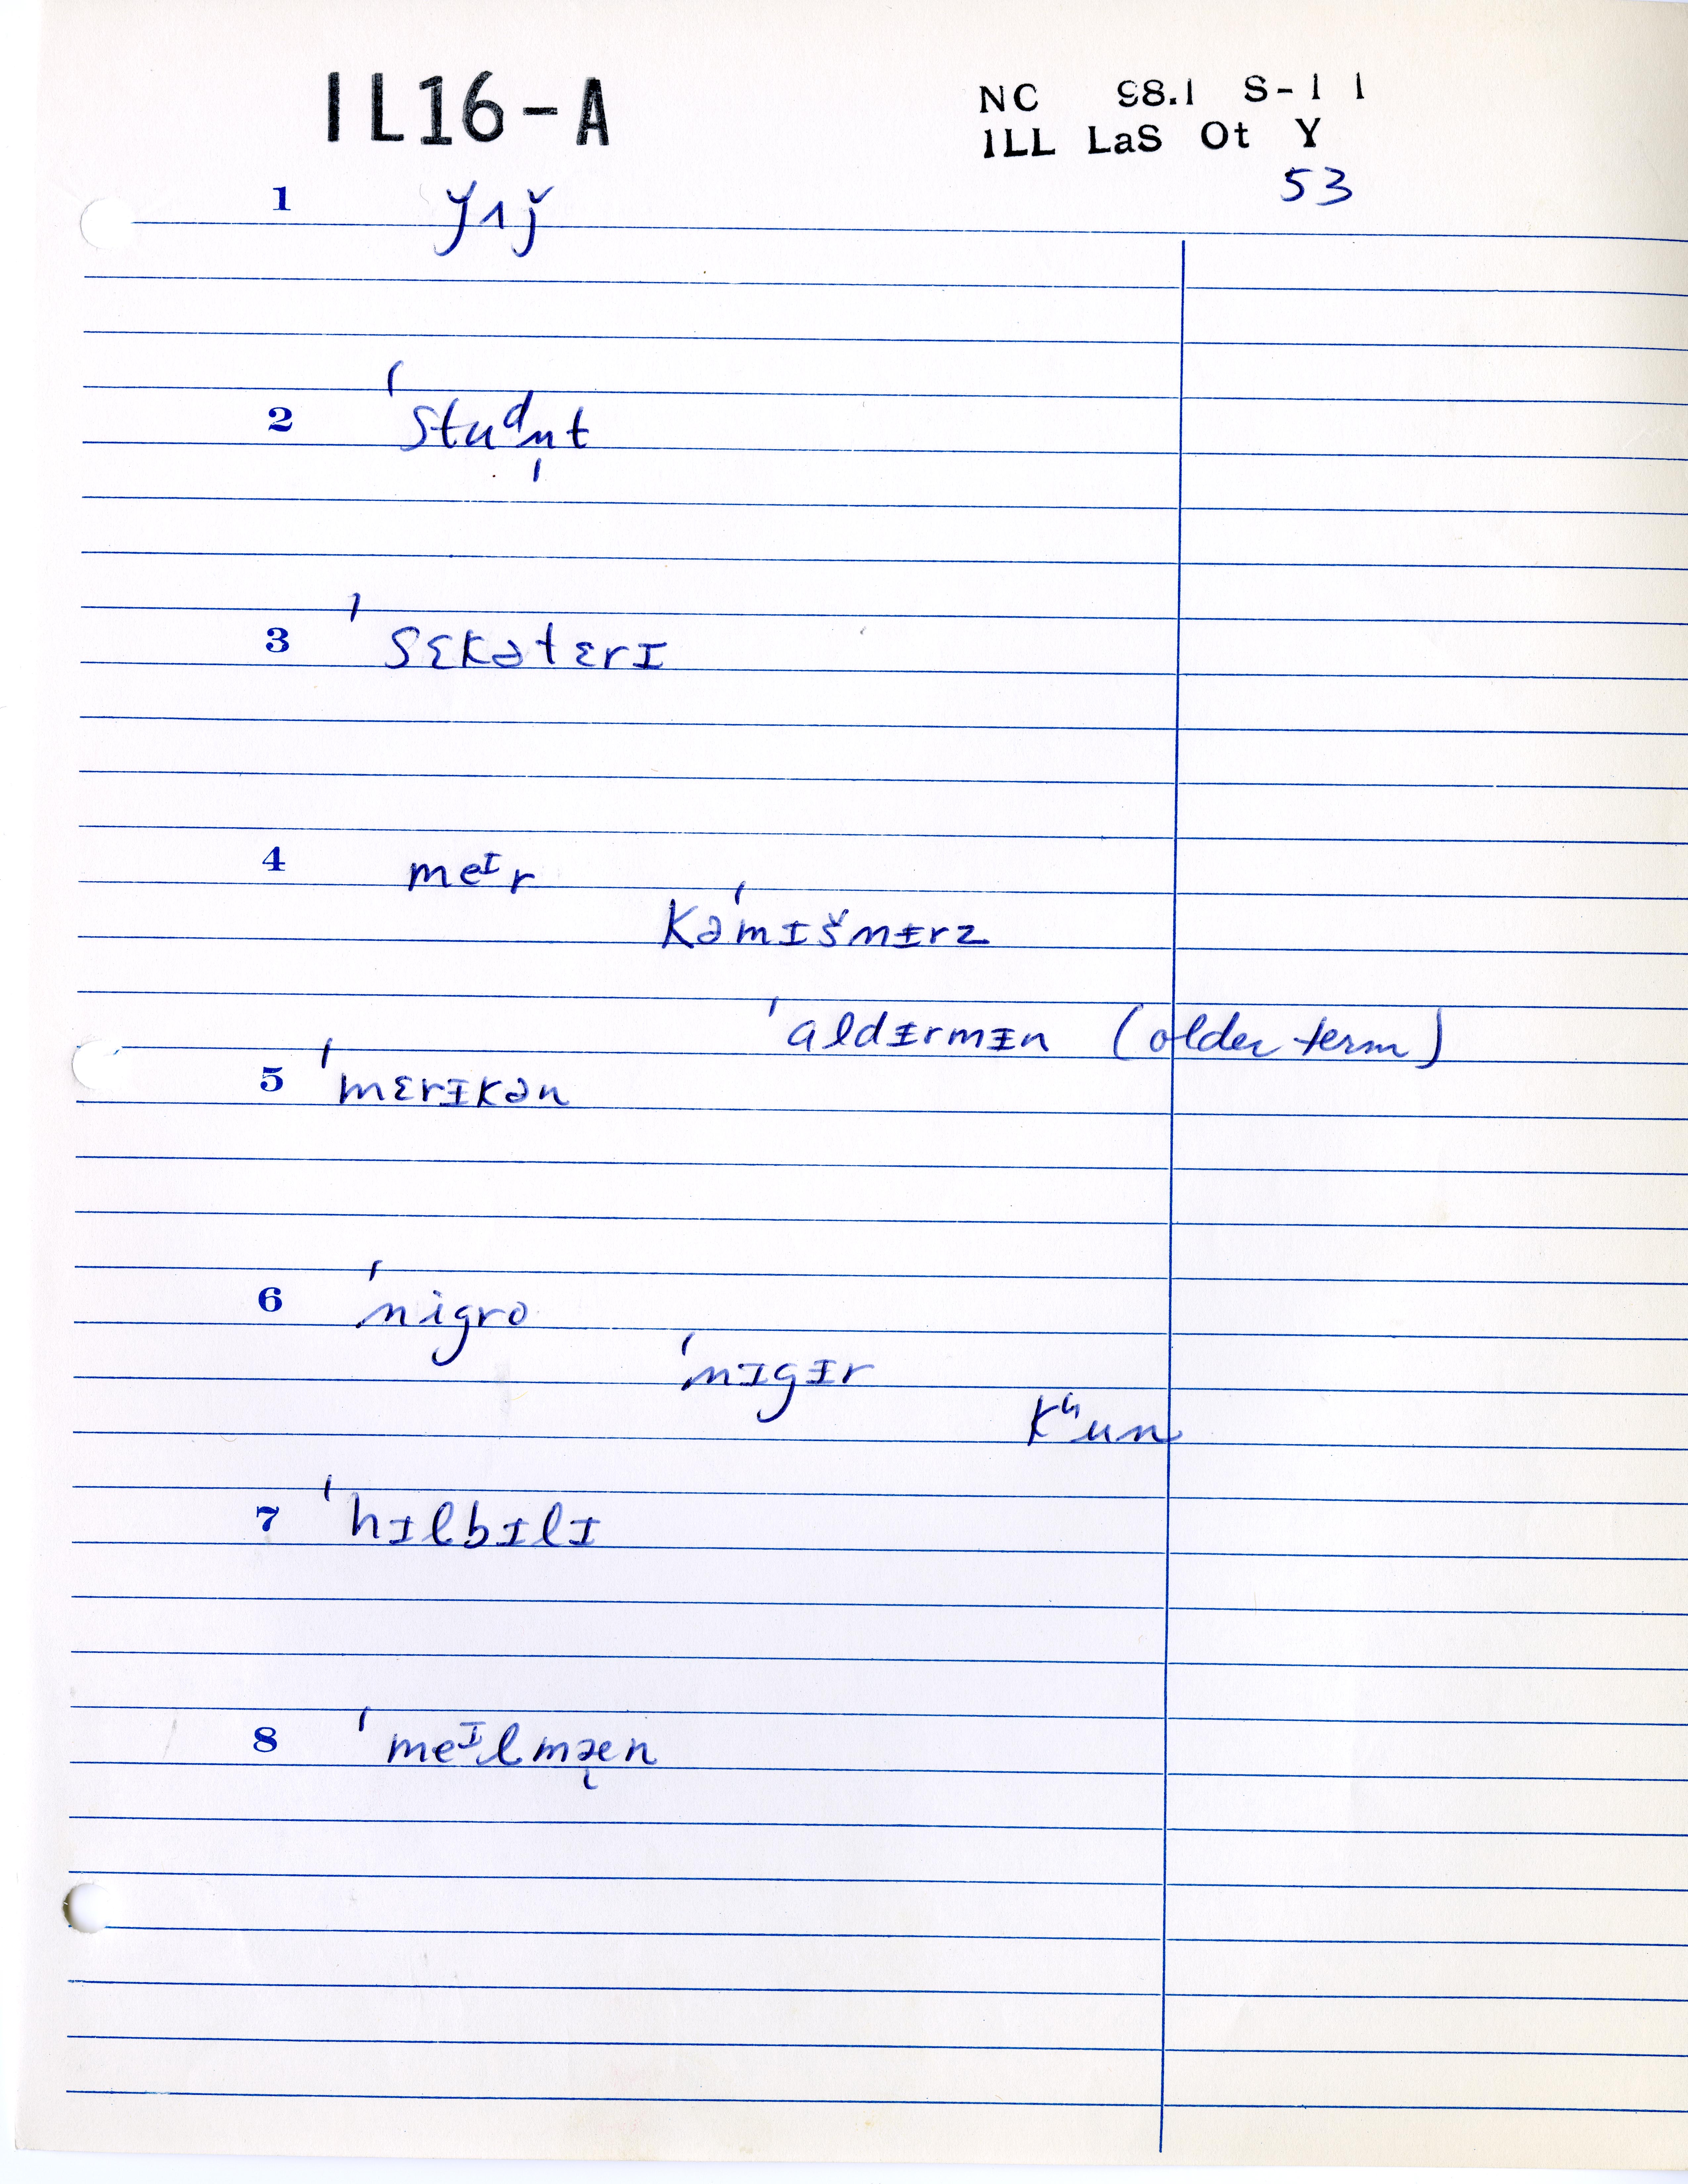 IL16-A
NC 98.1 S-11
ILL LaS Ot Y
53
1 ǰʌǰ
2 ˈstudn̩t
3 ˈsɛkətɛrɪ
4 meᴵr
kəˈmɪšnɨrz
ˈaldɨrmɨn (older term)
5 ˈmɛrɨkən
6 ˈnigro
ˈnɪgɨr
kʰun
7 ˈhɪlbɪlɪ
8 ˈmeᴵlmæ̨n